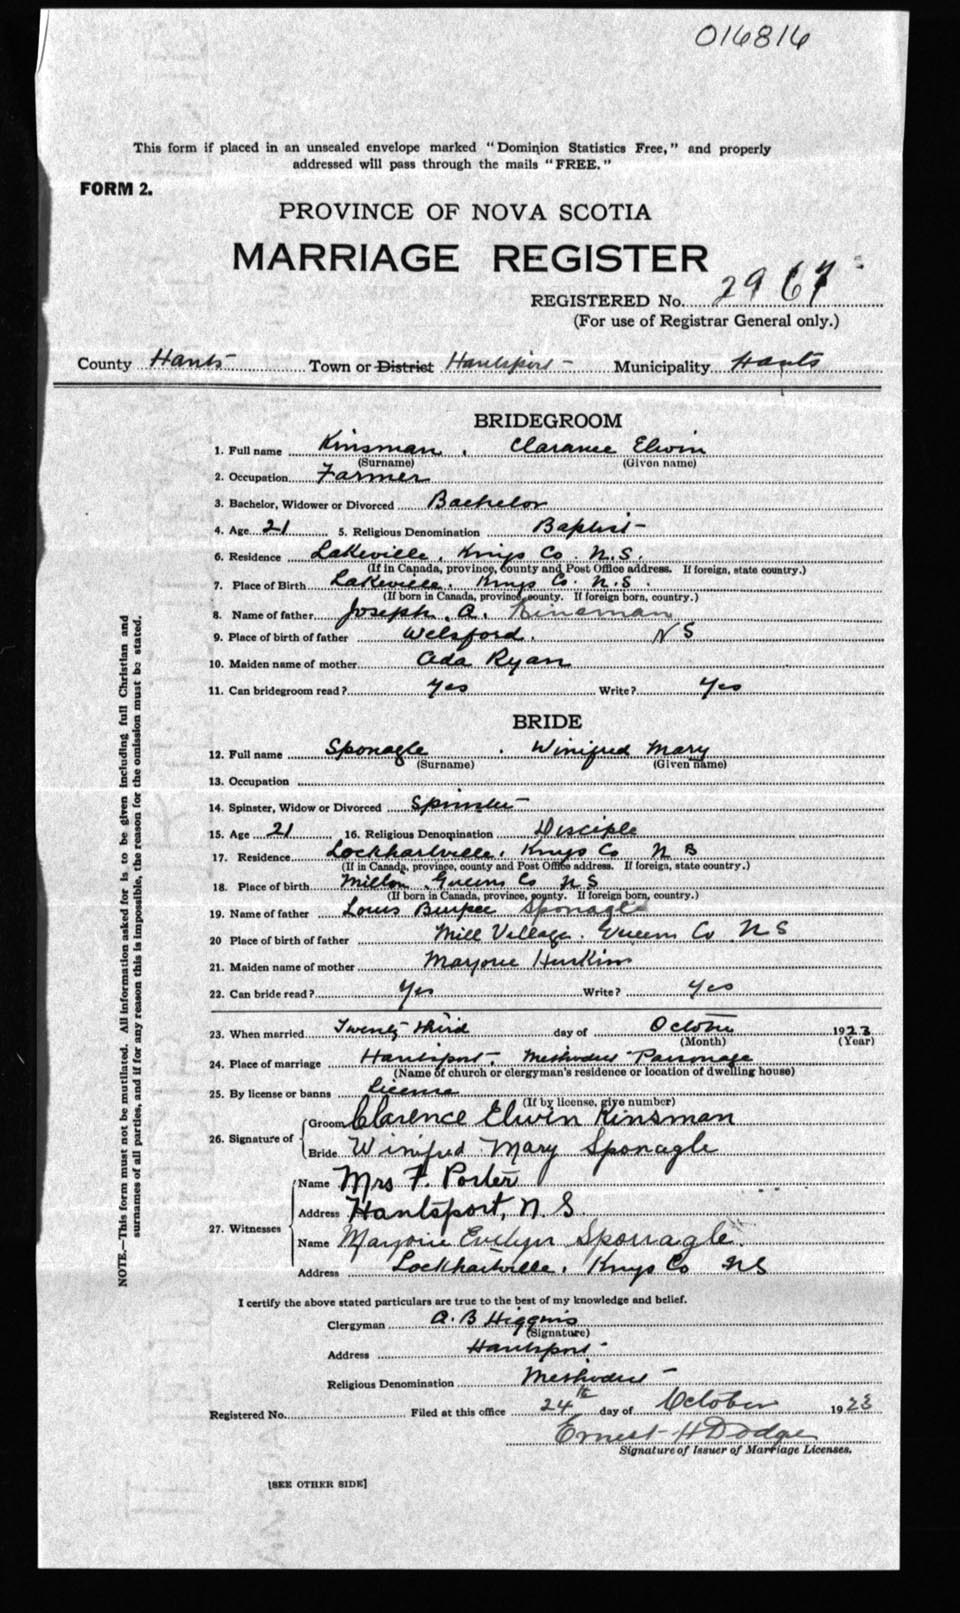 016816
This form if placed in an unsealed envelope marked "Dominion Statistics Free," and properly
addressed will pass through the mails "FREE."
FORM 2.
PROVINCE OF NOVA SCOTIA
MARRIAGE REGISTER
REGISTERED No. 2967
(For use of Registrar General only.)
County Hants Town or District Hantsport Municipality Hants
BRIDEGROOM
1. Full name Kinsman, Clarance Elwin
(Surname) (Given name)
2. Occupation Farmer
3. Bachelor, Widower or Divorced Bachelor
4. Age 21 5. Religious Denomination Baptist
6. Residence Lakeville, Kings Co. N.S.
(If in Canada, province, county and Post Office address. If foreign, state country.)
7. Place of Birth Lakeville. Kings Co. N.S.
(If born in Canada, province, county. If foreign born, country.)
8. Name of father Joseph A. Kinsman
9. Place of birth of father Welsford. NS
10. Maiden name of mother Ada Ryan
11. Can bridegroom read? Yes Write? Yes
BRIDE
12. Full name Sponagle. Winifred Mary
(Surname) (Given name)
13. Occupation
14. Spinster, Widow or Divorced Spinster
15. Age 21 16. Religious Denomination Disciple
17. Residence Lockhartville, Kings Co N S
(If in Canada, province, county and Post Office address. If foreign, state country.)
18. Place of birth Milton. Queens Co N S
(If born in Canada, province, county. If foreign born, country.)
19. Name of father Louis Burpee Sponagle
20 Place of birth of father Mill Village. Queens Co N S
21. Maiden name of mother Marjorie
22. Can bride read? Yes Write? Yes
23. When married Twenty third day of October 1923
(Month) (Year)
24. Place of marriage Hantsport, Methodist Parsonage
(Name of church or clergyman's residence or location of dwelling house)
25. By license or banns License
(If by license, give number)
26. Signature of Groom Clarence Elwin Kinsman
Bride Winifred Mary Sponagle
27. Witnesses Name Mrs F. Porter
Address Hantsport, N. S.
Name Marjorie Evelyn Sponagle.
Address Lockhartville, Kings Co NS
I certify the above stated particulars are true to the best of my knowledge and belief.
Clergyman A. B Higgins
(Signature)
Address Hantsport
Religious Denomination Methodist
Registered No. Filed at this office 24th day of October 1923
Ernest H Dodge
Signature of Issuer of Marriage Licenses.
[SEE OTHER SIDE]
NOTE.—This form must not be mutilated. All information asked for is to be given including full Christian and
surnames of all parties, and if for any reason this is impossible, the reason for the omission must be stated.